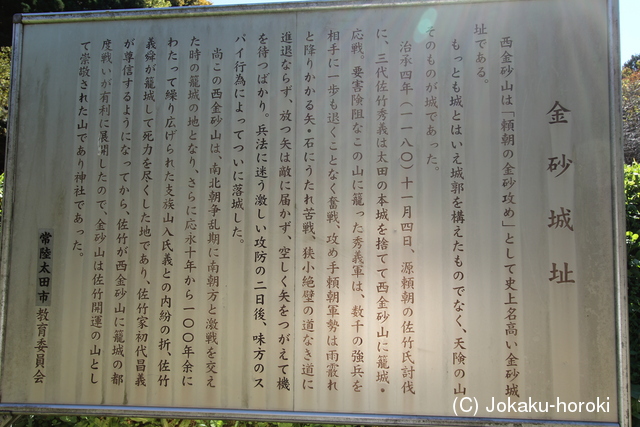 金砂城址
西金砂山は「頼朝の金砂攻め」として史上名高い金砂城
址である。
もっとも城とはいえ城郭を構えたものでなく、天険の山
てのものが城であった。
治承四年(一一八〇)十一月四日、源頼朝の佐竹氏討伐
に、三代佐竹秀義は太田の本城を捨てて西金砂山に籠城・
応戦。要害険阻なこの山に籠った秀義軍は、数千の強兵を
相手に一歩も退くことなく奮戦、攻め手頼朝軍勢は雨霰れ
と降りかかる矢・石にうたれ苦戦、狭小絶壁の道なき道に
進退ならず、放つ矢は敵に届かず、空しく矢をつがえて機
を待つばかり。兵法に迷う激しい攻防の二日後、味方のス
パイ行為によってついに落城した。
尚この西金砂山は、南北朝争乱期に南朝方と激戦を交え
た時の籠城の地となり、さらに応永十年から一〇〇年余に
わたって繰り広げられた支族山入氏義との内紛の折、佐竹
義舜が籠城して死力を尽くした地であり、佐竹家初代昌義
が尊信するようになってから、佐竹が西金砂山に籠城の都
度戦いが有利に展開したので、金砂山は佐竹開運の山とし
て崇敬された山であり神社であった。
常陸太田市教育委員会
(C) Jokaku-horoki